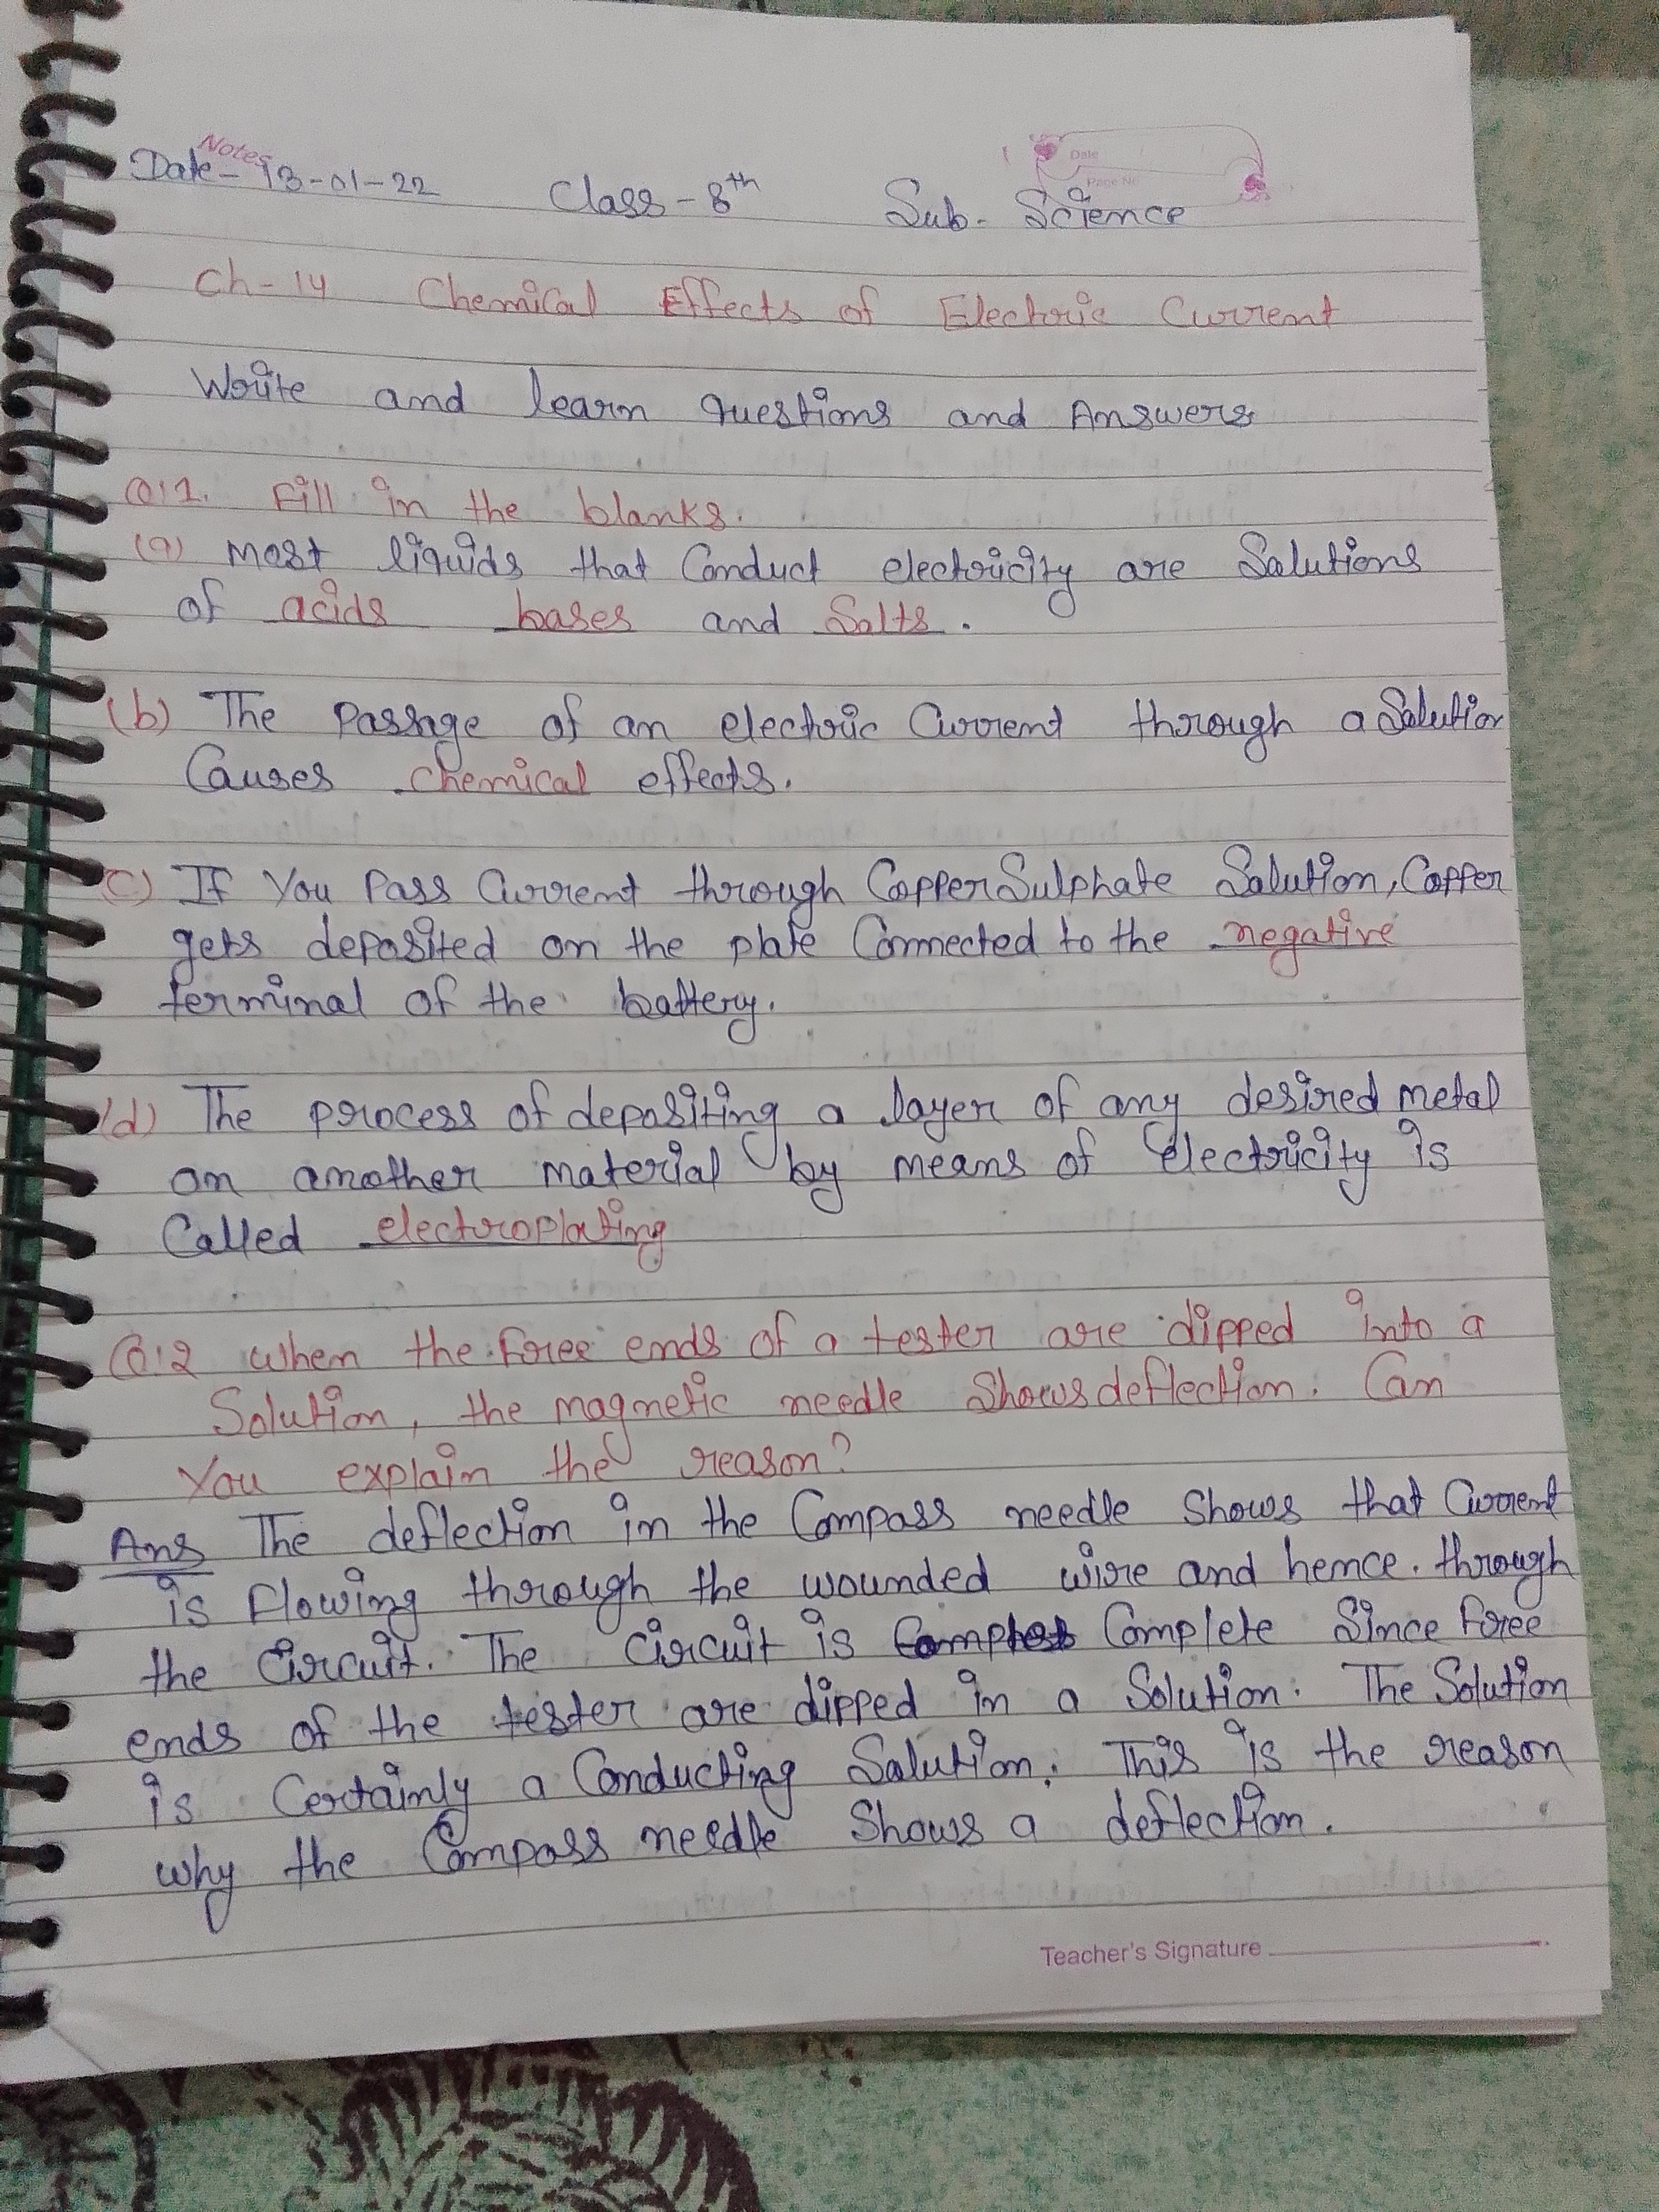 Notes
Date- 13-01-22 Class-8th Sub- Science
Date
Page No
Ch-14 Chemical Effects of Electric Current
Write and learn questions and Answers
Q:1. Fill in the blanks.
(a) Most liquids that Conduct electricity are Solutions
of acids bases and Salts.
(b) The Passage of an electric Current through a Solution
Causes chemical effects.
(c) If You Pass Current through Copper Sulphate Solution, Copper
gets deposited on the plate Connected to the negative
terminal of the battery.
(d) The process of depositing a layer of any desired metal
on another material by means of Electricity is
Called electroplating
Q:2 When the free ends of a tester are dipped into a
Solution, the magnetic needle Shows deflection. Can
You explain the reason?
Ans The deflection in the Compass needle Shows that Current
is flowing through the wounded wire and hence. through
the Circuit. The Circuit is Complete Since free
ends of the tester are dipped in a Solution. The Solution
is Certainly a Conducting Solution. This is the reason
why the Compass needle Shows a deflection.
Teacher's Signature